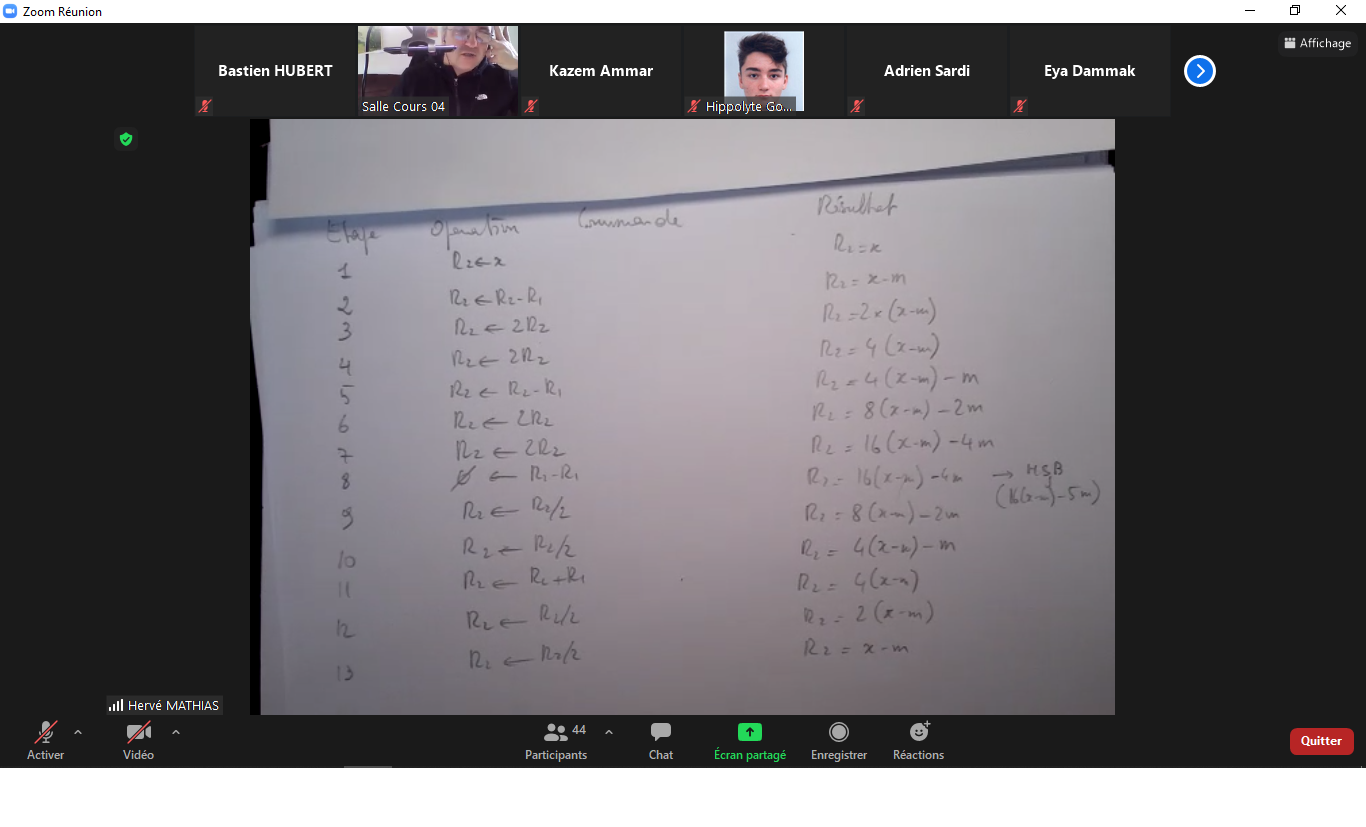 Zoom Réunion
Affichage
Bastien HUBERT
Salle Cours 04
Kazem Ammar
Hippolyte Go...
Adrien Sardi
Eya Dammak
Etape Operation Commande Résultat
1 R2 ← x R2 = x
2 R2 ← R2 - R1 R2 = x - m
3 R2 ← 2R2 R2 = 2 × (x-m)
4 R2 ← 2R2 R2 = 4 (x-m)
5 R2 ← R2 - R1 R2 = 4 (x-m) - m
6 R2 ← 2R2 R2 = 8 (x-m) - 2m
7 R2 ← 2R2 R2 = 16 (x-m) - 4m
8 ∅ ← R2 - R1 R2 = 16(x-m) - 4m → MSB
(16(x-m) - 5m)
9 R2 ← R2/2 R2 = 8 (x-m) - 2m
10 R2 ← R2/2 R2 = 4(x-m) - m
11 R2 ← R2 + R1 R2 = 4(x-m)
12 R2 ← R2/2 R2 = 2 (x-m)
13 R2 ← R2/2 R2 = x - m
Hervé MATHIAS
Activer
Vidéo
Participants 44
Chat
Écran partagé
Enregistrer
Réactions
Quitter